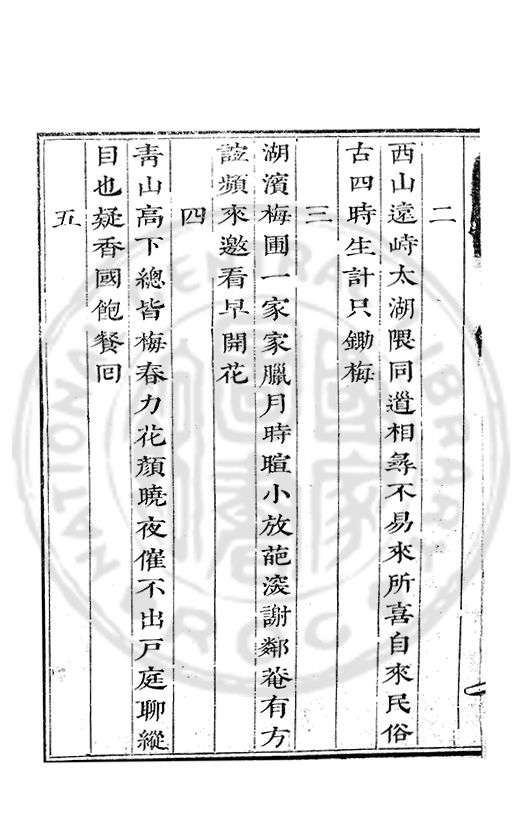 二
西山遠峙太湖隈同遊相尋不易來所喜自來民俗
古四時生計只鋤梅
三
湖濱梅圃一家家臘月時暄小放葩深謝鄰菴有方
誼頻來邀看早開花
四
青山高下總皆梅春力花顏曉夜催不出戶庭聊縱
目也疑香國飽餐回
五